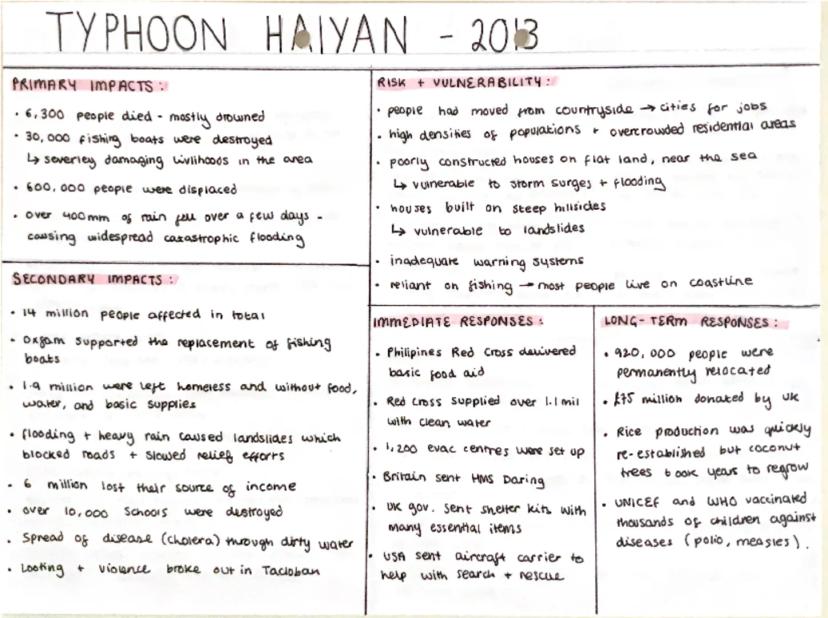 TYPHOON HAIYAN - 2013
PRIMARY IMPACTS:
• 6,300 people died - mostly drowned
• 30,000 fishing boats were destroyed
↳ severley damaging livlihoods in the area
• 600,000 people were displaced
• over 400mm of rain fell over a few days -
causing widespread catastrophic flooding
SECONDARY IMPACTS:
• 14 million people affected in total
• Oxfam supported the replacement of fishing
boats
• 1.9 million were left homeless and without food,
water, and basic supplies
• flooding + heavy rain caused landslides which
blocked roads + slowed relief efforts
• 6 million lost their source of income
• over 10,000 schools were destroyed
• Spread of disease (cholera) through dirty water
• Looting + violence broke out in Tacloban
RISK + VULNERABILITY:
• people had moved from countryside → cities for jobs
• high densities of populations + overcrowded residential areas
• poorly constructed houses on flat land, near the sea
↳ vulnerable to storm surges + flooding
• houses built on steep hillsides
↳ vulnerable to landslides
• inadequate warning systems
• reliant on fishing → most people live on coastline
IMMEDIATE RESPONSES:
• Philipines Red Cross delivered
basic food aid
• Red Cross supplied over 1.1 mil
with clean water
• 1,200 evac centres were set up
• Britain sent HMS Daring
• UK gov. sent shelter kits with
many essential items
• USA sent aircraft carrier to
help with search + rescue
LONG-TERM RESPONSES:
• 920,000 people were
permanently relocated
• £75 million donated by UK
• Rice production was quickly
re-established but coconut
trees took years to regrow
• UNICEF and WHO vaccinated
thousands of children against
diseases (polio, measles).